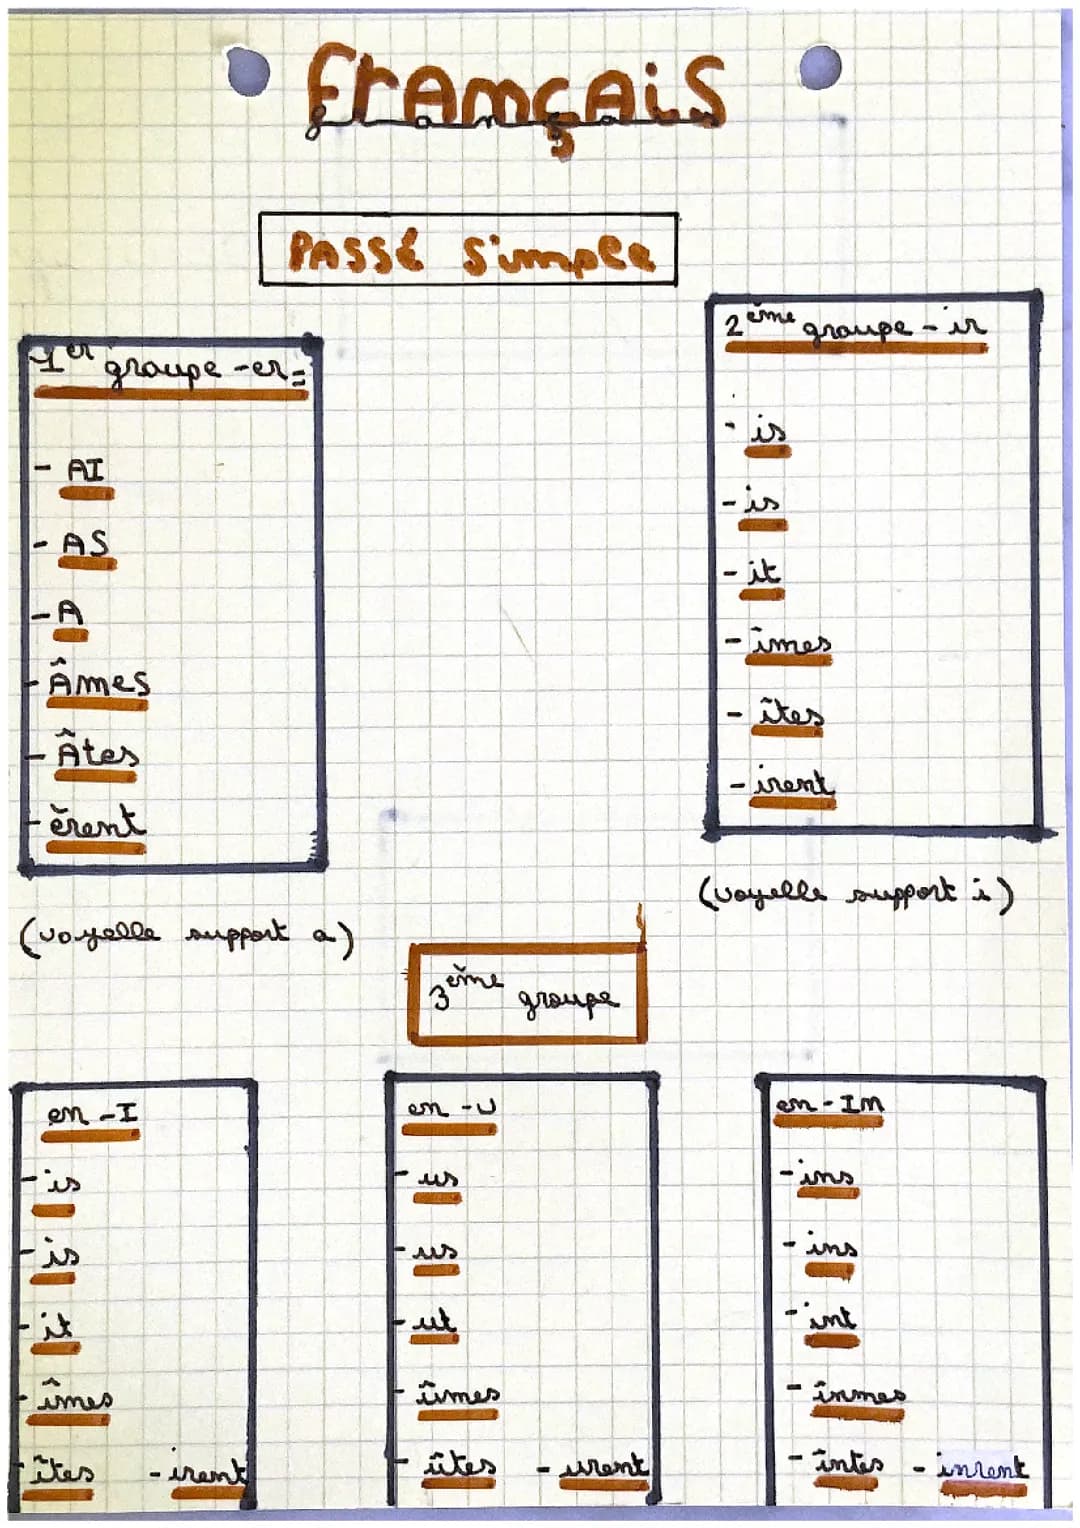 Français
français
Passé simple
1er groupe -er=
- AI
- AS
- A
- Âmes
- Âtes
- èrent
(voyelle support a)
2ème groupe - ir
- is
- is
- it
- îmes
- îtes
- irent
(voyelle support i)
3ème groupe
en -I
- is
- is
- it
- îmes
- îtes - irent
en -U
- us
- us
- ut
- ûmes
- ûtes - urent
en - In
- ins
- ins
- int
- înmes
- întes - inrent